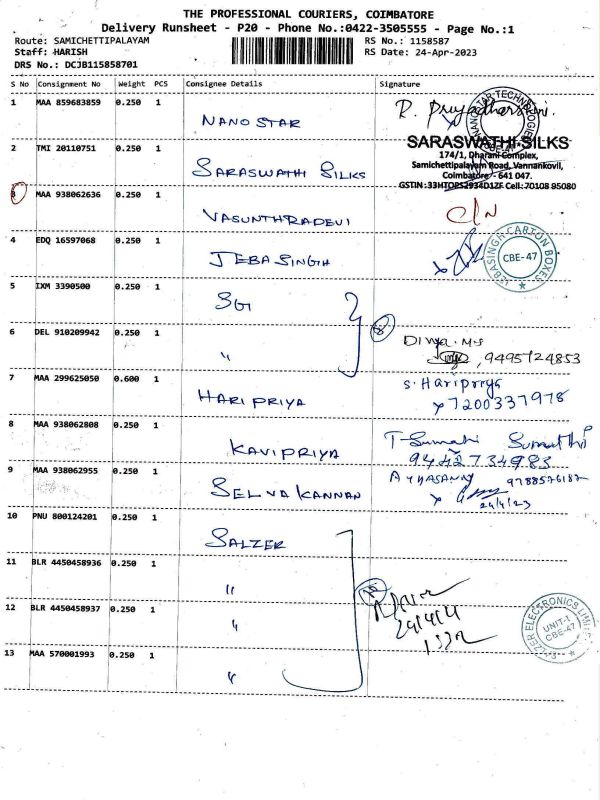 THE PROFESSIONAL COURIERS, COIMBATORE
Delivery Runsheet - P20 - Phone No.:0422-3505555 - Page No.:1
Route: SAMICHETTIPALAYAM RS No.: 1158587
Staff: HARISH RS Date: 24-Apr-2023
DRS No.: DCJB115858701
S No Consignment No Weight PCS Consignee Details Signature
1 MAA 859683859 0.250 1 NANO STAR R. Priyadharshini.
SARASWATHI SILKS
174/1, Dharani Complex,
Samichettipalayam Road, Vannankovil,
Coimbatore - 641 047.
GSTIN :33HTOPS2934D1ZF Cell: 70108 95080
2 TMI 20110751 0.250 1 SARASWATHI SILKS
3 MAA 938062636 0.250 1 VASUNTHRADEVI C/N
4 EDQ 16597068 0.250 1 JEBA SINGH
JEBASINGH CARTON BOXES
CBE-47
5 IXM 3390500 0.250 1 SGI
6 DEL 910209942 0.250 1 " Divya. M.S
9495724853
7 MAA 299625050 0.600 1 HARI PRIYA S. Haripriya
7200337978
8 MAA 938062808 0.250 1 KAVIPRIYA T-Sumathi Sumathi
9442734983
9 MAA 938062955 0.250 1 SELVA KANNAN 9788576187
24/4/23
10 PNU 800124201 0.250 1 SALZER
11 BLR 4450458936 0.250 1 "
12 BLR 4450458937 0.250 1 "
SALZER ELECTRONICS LIMITED
UNIT-1
CBE-47
13 MAA 570001993 0.250 1 "